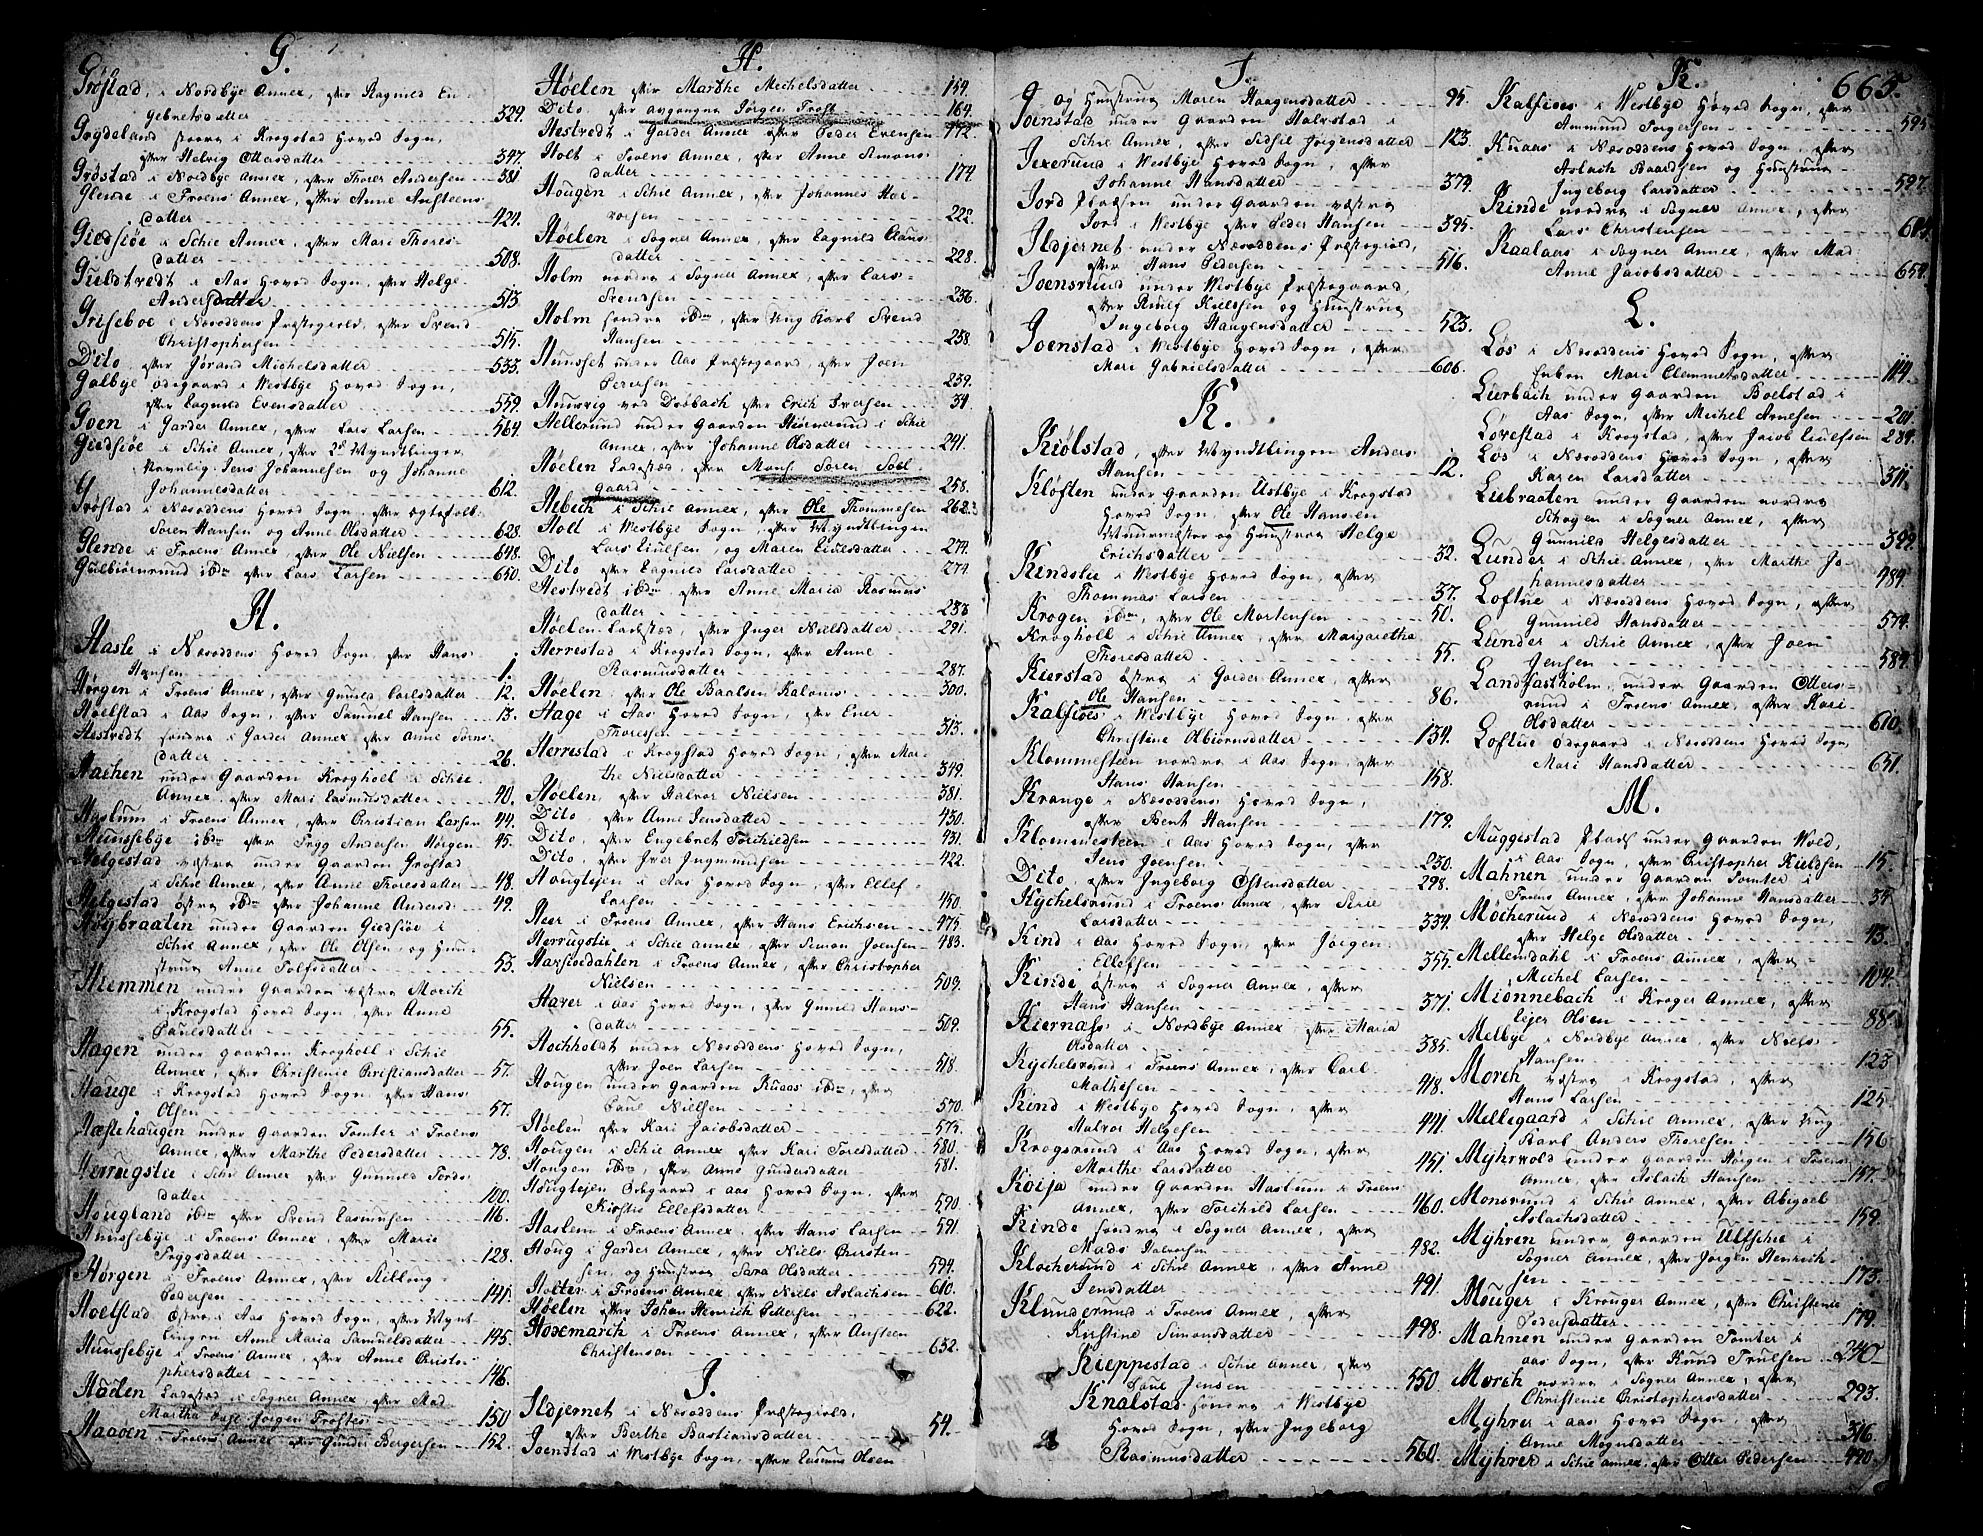 G.
Grøstad, i Nordbye Annex, efter Ragnild En-
gebretsdatter - - - 329.
Gogdaland større i Krogstad Hoved Sogn,
efter Helvig Ottersdatter - - - 347.
Grøstad i Nordbye Annex, efter Thorer Andersen - - 381
Glende i Froens Annex, efter Anne Ansteens-
datter - - - 424.
Giedsiøe i Schie Annex, efter Mari Thores-
datter - - - 508.
Guldtvedt i Aas Hoved Sogn, efter Helge
Andersdatter - - - 513.
Griseboe i Næsoddens Præstegield, efter Svend
Christophersen - - - 515.
Dito, efter Jørand Michelsdatter - - - 533.
Galbye ødegaard i Westbye Hoved Sogn,
efter Ragnild Evensdatter - - - 559.
Goen i Garder Annex, efter Lars Larsen - - - 564.
Giedsiøe i Schie Annex, efter 2de Myndtlinger
Navnlig Jens Johannesen og Johanne
Johannesdatter - - - 612.
Grøstad i Næsoddens Hoved Sogn, efter Ægtefolk
Søren Hansen og Anne Olsdatter - - - 628.
Glende i Froens Annex, efter Ole Nielsen - - - 648.
Gulbiørnrund ibdm efter Lars Larsen - - - 650.
H.
Hasle i Næsoddens Hoved Sogn, efter Hans
Hansen - - - 1.
Hørgen i Froens Annex, efter Gunild Carlsdatter - - 12.
Hoelstad i Aas Sogn, efter Samuel Hansen - - 13.
Hestvedt søndre i Garder Annex efter Anne Sørns-
datter - - - 26.
Hachen under Gaarden Krogholl i Schie
Annex, efter Mari Rasmusdatter - - - 40.
Haslum i Froens Annex, efter Christian Larsen 44.
Hunssebye ibdm efter Trygg Andersen Hørgen - 45.
Helgestad vestre under Gaarden Grøstad
i Schie Annex, efter Anne Thoresdatter - - 48.
Helgestad østre ibdm efter Johanne Andersd: - 49.
Høybraaten under Gaarden Giedsiøe i
Schie Annex, efter Ole Olsen, og Huu-
strue Anne Tolfsdatter - - - 53.
Hiemmen under Gaarden vestre Morch
i Krogstad Hoved Sogn, efter Anne
Poulsdatter - - - 55.
Hagen under Gaarden Krogholl i Schie
Annex, efter Christenie Christiansdatter - - 57.
Hauge i Krogstad Hoved Sogn efter Hans
Olsen - - - 57.
Hæstehaugen under Gaarden Tomter i Froens
Annex, efter Marthe Pedersdatter - - - 78.
Herrugstie i Schie Annex efter Gunnild Tords
datter - - - 100.
Hougland ibdm efter Svend Rasmusen - - - 116.
Hunssebye i Froens Annex, efter Marie
Tryggsdatter - - - 128.
Hørgen i Froens Annex, efter Killing
Pedersen - - - 141.
Hoelstad østre i Aas Hoved Sogn, efter Mynt-
lingen Anne Maria Samuelsdatter - - - 145.
Hunssebye i Froens Annex, efter Anne Christo-
phersdatter - - - 146.
Høelen Ladestæd i Sogner Annex efter Mad
Martha Sal. Jørgen Trostes - - - 150
Haaøen i Froens Annex efter Gunder Bergersen - - 152.
H.
Høelen efter Marthe Michelsdatter - - - 159.
Dito, efter afgangne Jørgen Trost - - - 164.
Hestvedt i Garder Annex, efter Peder Evensen 172.
Holt i Froens Annex, efter Anne Simons-
datter - - - 174.
Hougen i Schie Annex, efter Johannes Hal-
vorsen - - - 222.
Høelen i Sogner Annex, efter Ragnild Claus-
datter - - - 228.
Holm nordre i Sogner Annex, efter Lars
Svendsen - - - 236.
Holm søndre ibdm, efter Ung Karl Svend
Hansen - - - 238.
Huuset under Aas Præstegaard, efter Joen
Persen - - - 239.
Huusvig ved Drøbach efter Erich Iversen - - - 34.
Hellerund under Gaarden Hiørnerund i Schie
Annex, efter Johanne Olsdatter - - - 241.
Høelen Ladestæd, efter Mons. Søren Søel
gaard - - - 258.
Hebech i Schie Annex, efter Ole Thommesen 262.
Holt i Westbye Sogn, efter Myndtlingen
Lars Liulsen, og Maren Liulsdatter - - - 274.
Dito efter Ragnild Larsdatter - - - 274.
Hestvedt ibdm, efter Anne Maria Rasmus
datter - - - 283
Høelen Ladestæd, efter Inger Nielsdatter - - - 291.
Herrestad i Krogstad Sogn, efter Anne
Rasmusdatter - - - 287.
Høelen, efter Ole Paalsen Kalonis - - - 300.
Hage i Aas Hoved Sogn, efter Ener
Thoresen - - - 313.
Herrestad i Krogstad Hoved Sogn, efter Mar
the Nielsdatter - - - 349.
Høelen, efter Halvor Nielsen - - - 381.
Dito, efter Anne Jensdatter - - - 430.
Dito, efter Engebret Torchildsen - - - 431.
Dito, efter Iver Ingmundsen - - - 422.
Hougtejen i Aas Hoved Sogn, efter Ellef
Larsen - - - 450.
Heer i Froens Annex, efter Hans Erichsen - - - 475.
Herrugstie i Schie Annex, efter Simon Joensen - 483.
Harsioedahlen i Froens Annex, efter Christopher
Nielsen - - - 509.
Haver i Aas Hoved Sogn, efter Gunild Hans-
datter - - - 509.
Hochholdt under Næsoddens Hoved Sogn,
efter Joen Larsen - - - 518.
Hougen under Gaarden Kuaas ibdm, efter
Poul Nielsen - - - 570.
Høelen efter Kari Jacobsdatter - - - 573.
Hougen i Schie Annex efter Kari Toresdatter - - 580.
Hougen ibdm, efter Anne Gundersdatter - - 581.
Hougtejen Ødegaard i Aas Hoved Sogn, efter
Kirstie Ellefsdatter - - - 590.
Haslem i Froens Annex, efter Hans Larsen - - 591.
Houg i Garder Annex, efter Niels Christen-
sen, og Huustrue Sara Olsdatter - - - 594.
Holter i Froens Annex, efter Niels Aslachsen - - 610.
Høelen efter Johan Henrich Pettersen - - - 622.
Hosemarch i Froens Annex, efter Ansteen
Christensen - - - 632.
I.
Ildjernet i Næsoddens Præstegield,
efter Berthe Bastiansdatter - - - 54.
Joenstad i Westbye Sogn, efter Rasmus Olsen
I.
og Huustrue Maren Haagensdatter - - - 95.
Joenstad under Gaarden Halvstad i
Schie Annex, efter Sidsil Jørgensdatter 123.
Jexerund i Westbye Hoved Sogn, efter
Johanne Hansdatter - - - 374.
Jord Pladsen under Gaarden vestre
Jord i Westbye efter Peder Hansen - - - 395.
Ildjernet under Næsoddens Præstegield,
efter Hans Pedersen - - - 516.
Joensrund under Westbye Præstegaard,
efter Rasmus Nielsen og Huustrue
Ingeborg Haagensdatter - - - 523.
Joenstad i Westbye Hoved Sogn, efter
Mari Gabrielsdatter - - - 606.
K.
Kiølstad, efter Myndtlingen Anders
Hansen - - - 12.
Kløften under Gaarden Ustbye i Krogstad
Hoved Sogn, efter Ole Hansen
Muurmester og Huustrue Helge
Erichsdatter - - - 32.
Kindslie i Westbye Hoved Sogn, efter
Thommas Larsen - - - 37.
Krogen ibdm, efter Ole Mortensen - - - 50.
Krogholl i Schie Annex, efter Margaretha
Thoresdatter - - - 55.
Kierstad østre i Garder Annex, efter
Ole Hansen - - - 86.
Kalsioes i Westbye Hoved Sogn, efter
Christine Olbiørnsdatter - - - 134.
Klommesteen nordre i Aas Sogn, efter
Hans Hansen - - - 158.
Krange i Næsoddens Hoved Sogn,
efter Bent Hansen - - - 179.
Klommesteen i Aas Hoved Sogn, efter
Jens Joensen - - - 230.
Dito, efter Ingeborg Ostensdatter - - - 298.
Kychelsrund i Froens Annex, efter Sirie
Larsdatter - - - 334.
Kind i Aas Hoved Sogn, efter Jørgen
Ellefsen - - - 355.
Kinde østre i Sogner Annex, efter
Hans Hansen - - - 371.
Kiernass i Nordbye Annex, efter Maria
Olsdatter - - - 385.
Kychelsrund i Froens Annex, efter Carl
Mathisen - - - 418.
Kind i Westbye Hoved Sogn, efter
Halvor Helgesen - - - 441.
Krogsrund i Aas Hoved Sogn, efter
Marthe Larsdatter - - - 451.
Koija under Gaarden Haslum i Froens
Annex, efter Torchild Larsen - - - 460.
Kinde søndre i Sogner Annex, efter
Mads Halvorsen - - - 482.
Klocherund i Schie Annex, efter Anne
Jensdatter - - - 491.
Klunderund i Froens Annex, efter
Kirstine Simonsdatter - - - 498.
Kieppestad i Schie Annex, efter
Poul Jensen - - - 550
Knalstad søndre i Westbye
Hoved Sogn, efter Ingeborg
Rasmusdatter - - - 560.
K. 665.
Kalsioes i Westbye Hoved Sogn, efter
Ammund Torgersen - - - 595.
Kuaas i Næsoddens Hoved Sogn, efter
Aslach Baardsen og Huustrue
Ingeborg Larsdatter - - - 597.
Kinde nordre i Sogner Annex, efter
Lars Christensen - - - 604.
Kaalaas i Sogner Annex, efter Mad
Anne Jacobsdatter - - - 654.
L.
Løs i Næsoddens Hoved Sogn, efter
Enken Mari Clemmetsdatter - - - 114.
Lierbach under Gaarden Boelstad i
Aas Sogn, efter Michel Arnesen - - - 201.
Løvestad i Krogstad, efter Jacob Liulfsen 284.
Løs i Næsoddens Hoved Sogn, efter
Karen Larsdatter - - - 311.
Liebraaten under Gaarden nordre
Schogen i Sogner Annex, efter
Gunnild Helgesdatter - - - 399.
Lunder i Schie Annex, efter Marthe Jo-
hannesdatter - - - 484.
Loftue i Næsoddens Hoved Sogn, efter
Gunnild Hansdatter - - - 574.
Lunder i Schie Annex, efter Joen
Jensen - - - 584.
Landfastholm, under Gaarden Otters-
rund i Froens Annex, efter Kari
Olsdatter - - - 610.
Loftue ødegaard i Næsoddens Hoved Sogn,
Mari Hansdatter - - - 651.
M.
Muggestad Plads under Gaarden Wold,
i Aas Sogn, efter Christopher Kieldsen - - 15.
Mahnen under Gaarden Tomter i
Froens Annex, efter Johanne Hansdatter - - 34
Mocherund i Næsoddens Hoved Sogn,
efter Helge Olsdatter - - - 43.
Mellemdahl i Froens Annex, efter
Michel Larsen - - - 104.
Miønnebach i Kroger Annex, efter
Ejer Olsen - - - 88.
Melbye i Nordbye Annex, efter Niels
Hansen - - - 123
Morch vestre i Krogstad, efter
Hans Larsen - - - 125.
Mellegaard i Schie Annex, efter Ung
Karl Anders Thoresen - - - 156
Myhrvold under Gaarden Hørgen i Froens
Annex, efter Aslach Hansen - - - 157.
Monsrund i Schie Annex, efter Abigael
Aslachsdatter - - - 159.
Myhren under Gaarden Ulfschie i
Sogner Annex, efter Jørgen Henrich-
sen - - - 173.
Mouger i Krouger Annex, efter Christenie
Pedersdatter - - - 179.
Mahnen under Gaarden Tomter i
Aas Sogn, efter Knud Trulsen - - - 240
Morch nordre i Sogner Annex, efter
Christenie Christophersdatter - - - 293.
Myhrer i Aas Hoved Sogn, efter
Anne Mognsdatter - - - 316.
Myhrer i Schie Annex, efter Otter Pedersen - - - 490.